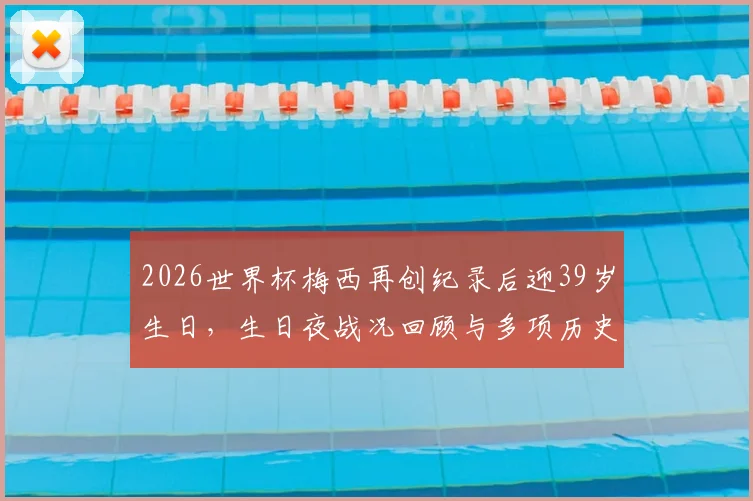 2026世界杯梅西再创纪录后迎39岁
生日，生日夜战况回顾与多项历史